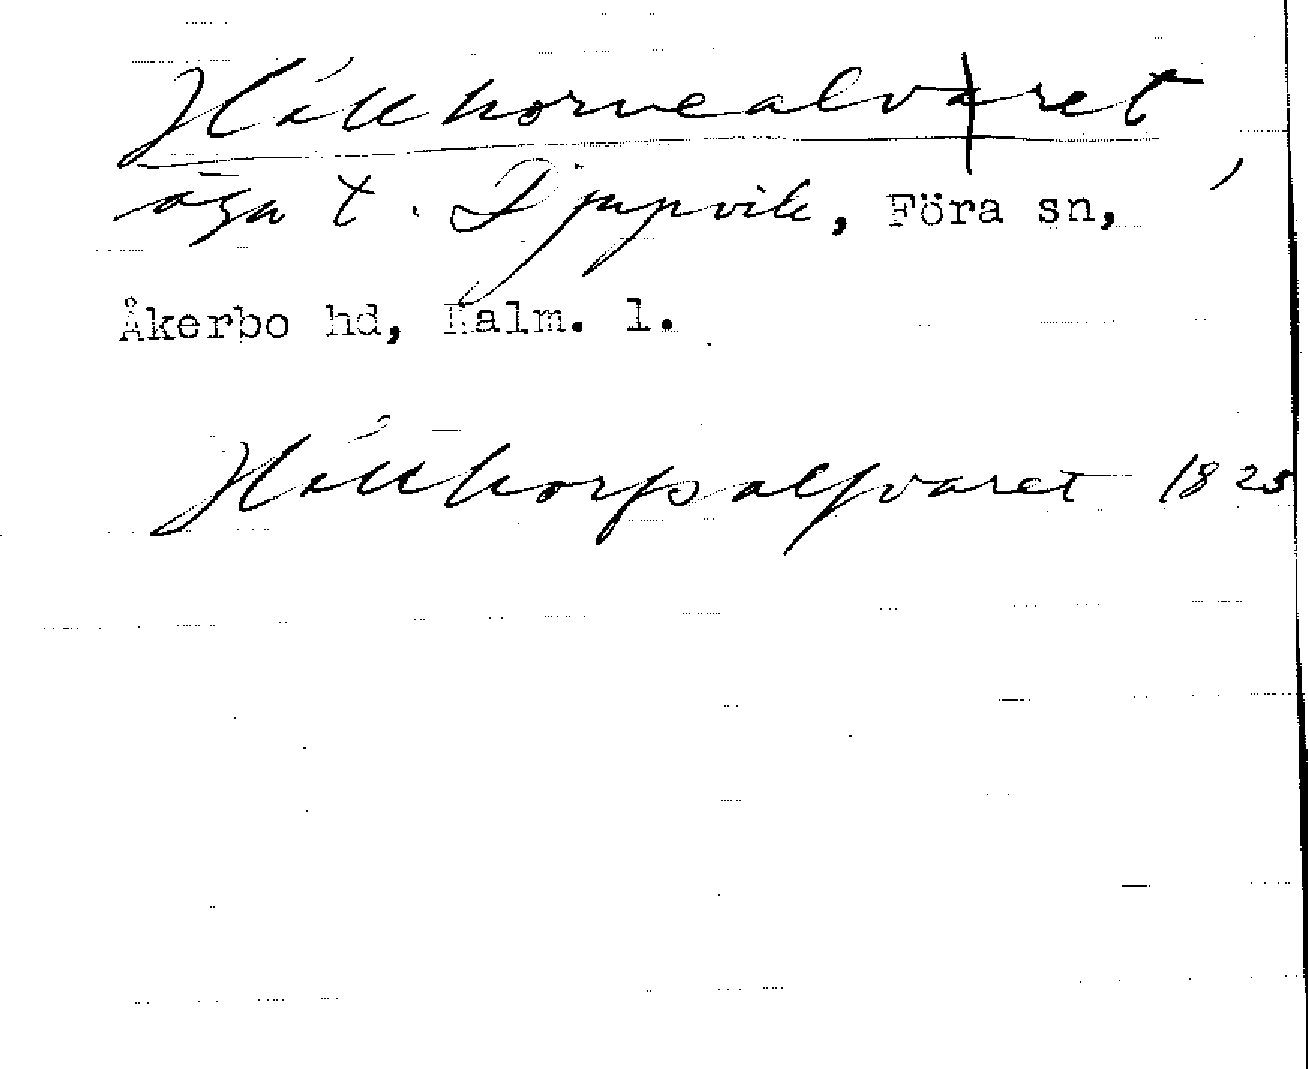 Hällhornealvaret,
äga t. Djupvik, Föra sn,
Åkerbo hd, Kalm. l.
Hällhorfsalfvaret 1825